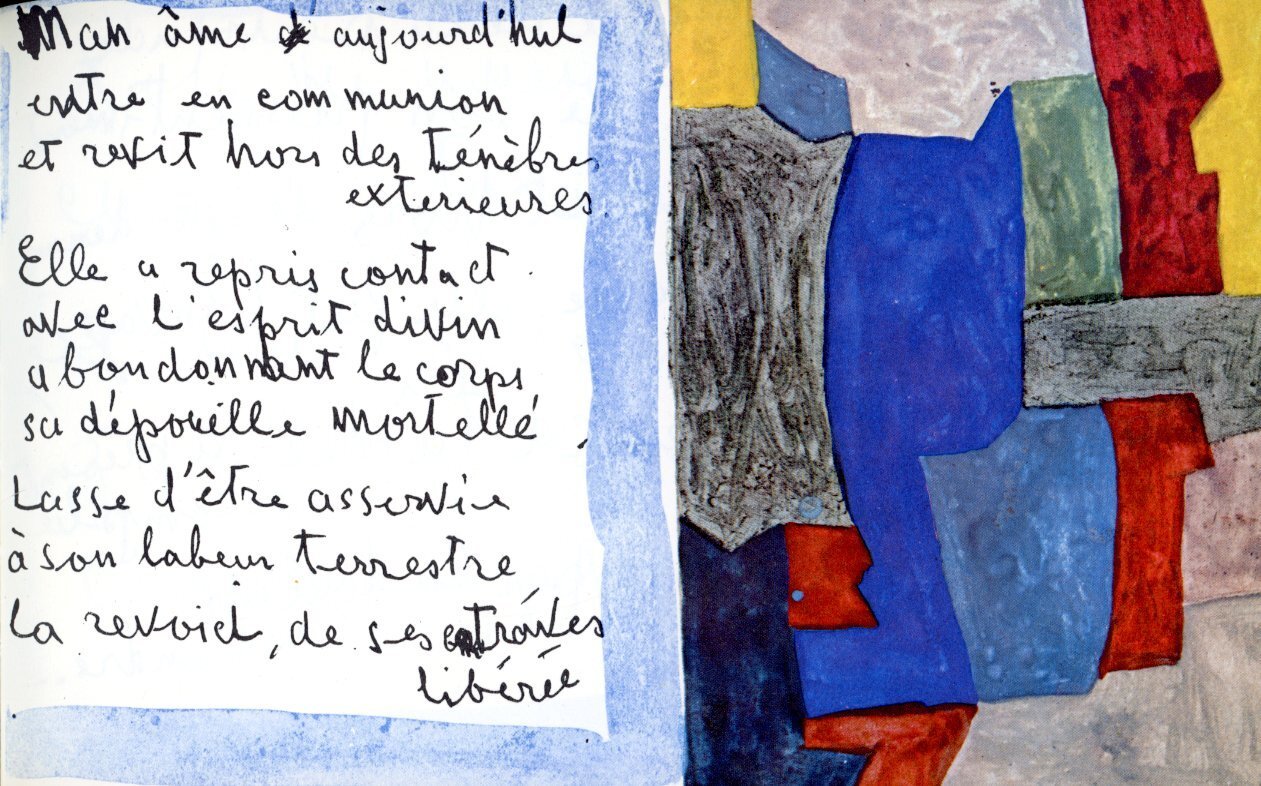 Mon âme aujourd'hui
entre en communion
et revit hors des ténèbres
exterieures.
Elle a repris contact
avec l'esprit divin
abandonnant le corps
sa dépouille mortelle
Lasse d'être asservie
à son labeur terrestre
La revoici, de ses entraves
libérée